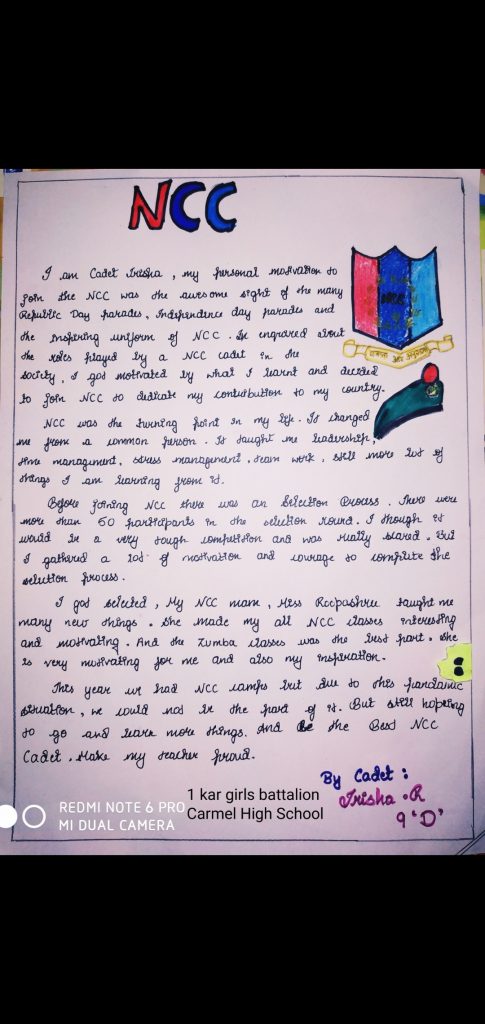 NCC
I am Cadet Irisha, my personal motivation to
join the NCC was the awesome sight of the many
Republic Day parades, Independence day parades and
the inspiring uniform of NCC. In engraved about
the roles played by a NCC cadet in the
society, I got motivated by what I learnt and decided
to join NCC to dedicate my contribution to my country.
NCC was the turning point in my life. It changed
me from a common person. It taught me leadership,
time management, stress management, team work, still more lot of
things I am learning from it.
Before joining NCC there was an Selection Process. There were
more than 50 participants in the selection round. I though it
would be a very tough competition and was really scared. But
I gathered a lot of motivation and courage to complete the
selection process.
I got selected, My NCC mam, Miss Roopashree taught me
many new things. She made my all NCC classes interesting
and motivating. And the Zumba classes was the best part. She
is very motivating for me and also my inspiration.
This year we had NCC camps but due to this pandamic
situation, we could not be the part of it. But still hoping
to go and learn more things. And Be the Best NCC
Cadet. Make my teacher proud.
By Cadet :
Trisha . R
9 'D'
1 kar girls battalion
Carmel High School
REDMI NOTE 6 PRO
MI DUAL CAMERA
NCC
एकता और अनुशासन